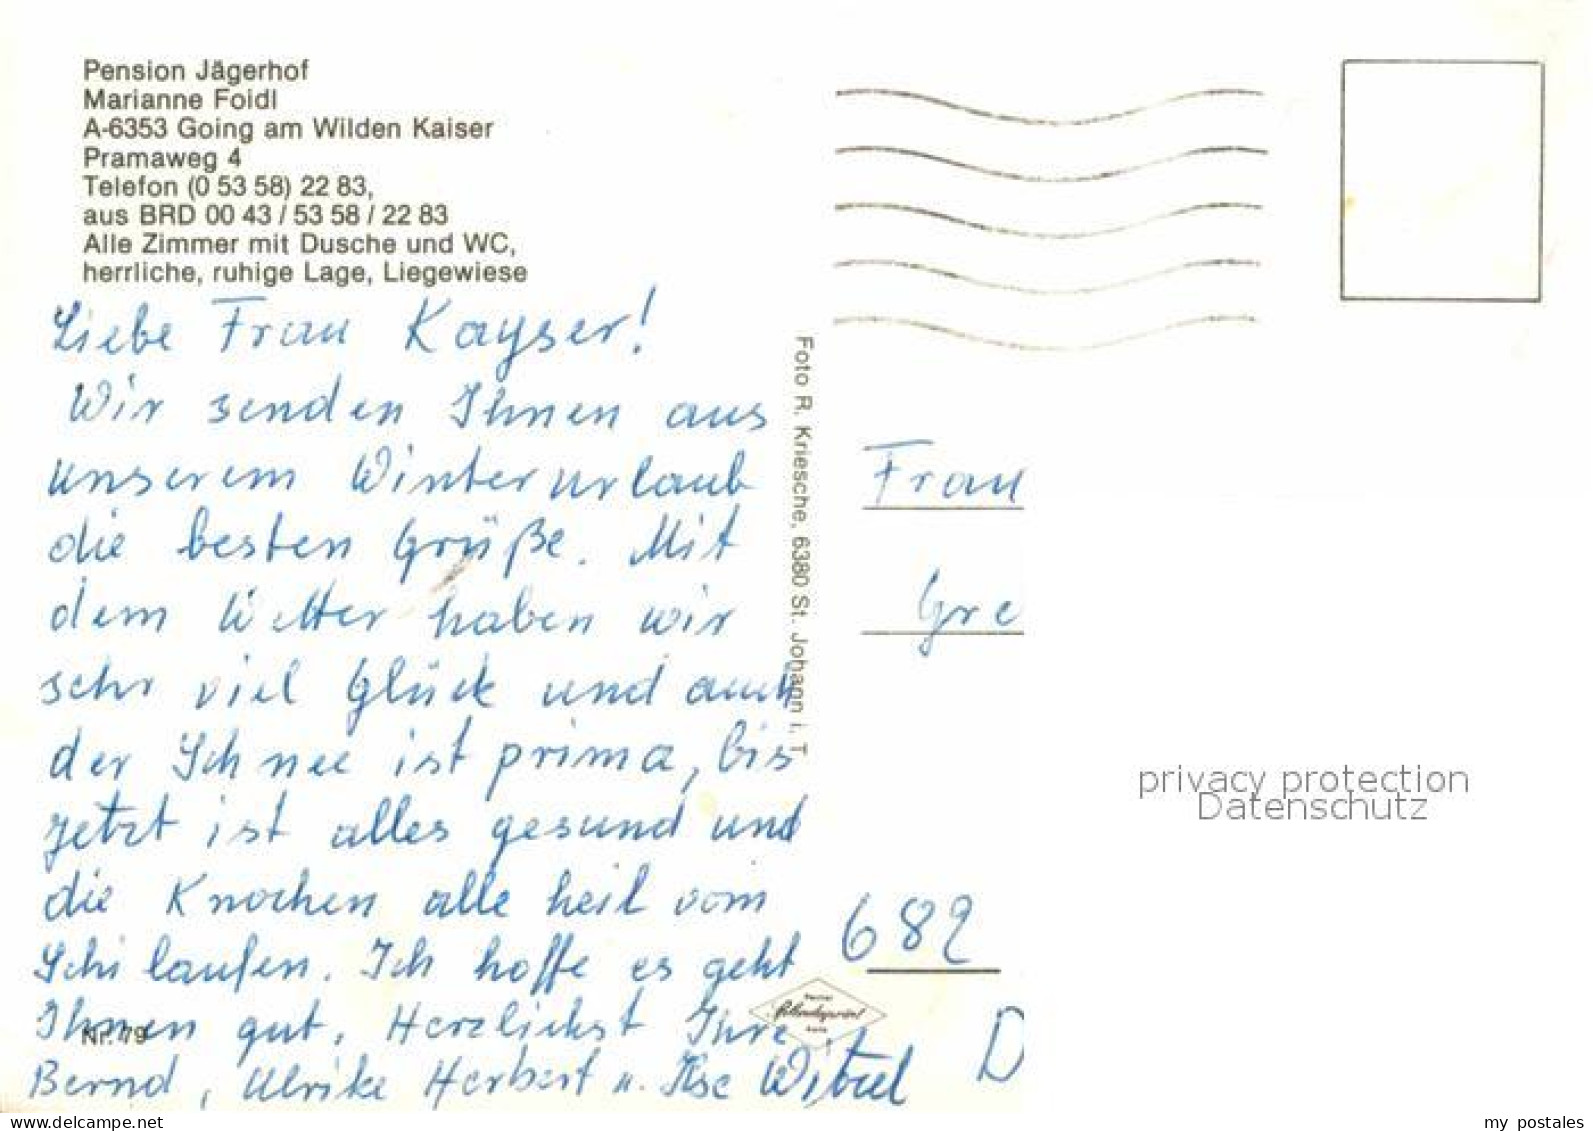 Pension Jägerhof
Marianne Foidl
A-6353 Going am Wilden Kaiser
Pramaweg 4
Telefon (0 53 58) 22 83,
aus BRD 00 43 / 53 58 / 22 83
Alle Zimmer mit Dusche und WC,
herrliche, ruhige Lage, Liegewiese
Liebe Frau Kayser!
Wir senden Ihnen aus
unserem Winterurlaub
die besten Grüße. Mit
dem Wetter haben wir
sehr viel Glück und auch
der Schnee ist prima, bis
jetzt ist alles gesund und
die Knochen alle heil vom
Schilaufen. Ich hoffe es geht
Ihnen gut. Herzlichst Ihre
Bernd, Ulrike Herbert u. Ilse
Nr. 79
Foto R. Kriesche, 6380 St. Johann i. T.
Frau
Gre
682
D
privacy protection
Datenschutz
www.delcampe.net
my_postales